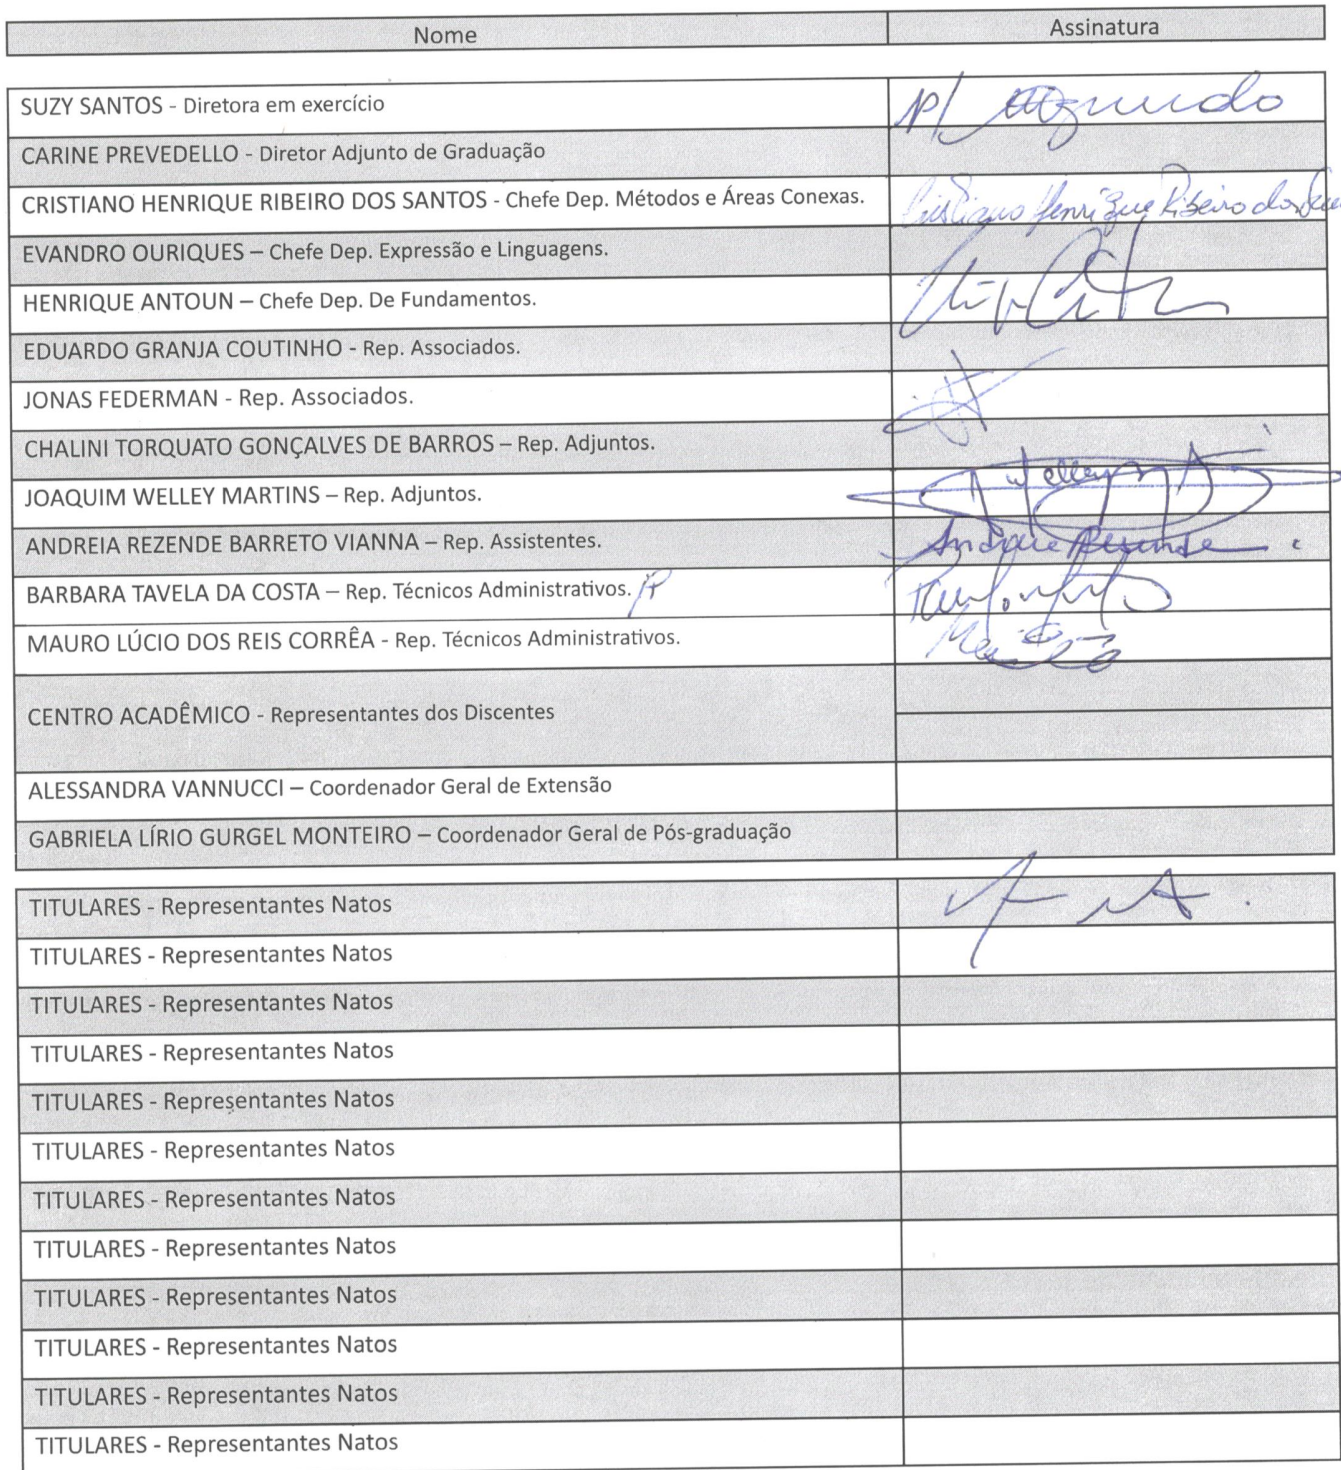 Nome Assinatura
SUZY SANTOS - Diretora em exercício P/
CARINE PREVEDELLO - Diretor Adjunto de Graduação
CRISTIANO HENRIQUE RIBEIRO DOS SANTOS - Chefe Dep. Métodos e Áreas Conexas. Cristiano Henrique Ribeiro dos
EVANDRO OURIQUES – Chefe Dep. Expressão e Linguagens.
HENRIQUE ANTOUN – Chefe Dep. De Fundamentos.
EDUARDO GRANJA COUTINHO - Rep. Associados.
JONAS FEDERMAN - Rep. Associados.
CHALINI TORQUATO GONÇALVES DE BARROS – Rep. Adjuntos.
JOAQUIM WELLEY MARTINS – Rep. Adjuntos. Welley
ANDREIA REZENDE BARRETO VIANNA – Rep. Assistentes.
BARBARA TAVELA DA COSTA – Rep. Técnicos Administrativos.
MAURO LÚCIO DOS REIS CORRÊA - Rep. Técnicos Administrativos.
CENTRO ACADÊMICO - Representantes dos Discentes
ALESSANDRA VANNUCCI – Coordenador Geral de Extensão
GABRIELA LÍRIO GURGEL MONTEIRO – Coordenador Geral de Pós-graduação
TITULARES - Representantes Natos
TITULARES - Representantes Natos
TITULARES - Representantes Natos
TITULARES - Representantes Natos
TITULARES - Representantes Natos
TITULARES - Representantes Natos
TITULARES - Representantes Natos
TITULARES - Representantes Natos
TITULARES - Representantes Natos
TITULARES - Representantes Natos
TITULARES - Representantes Natos
TITULARES - Representantes Natos